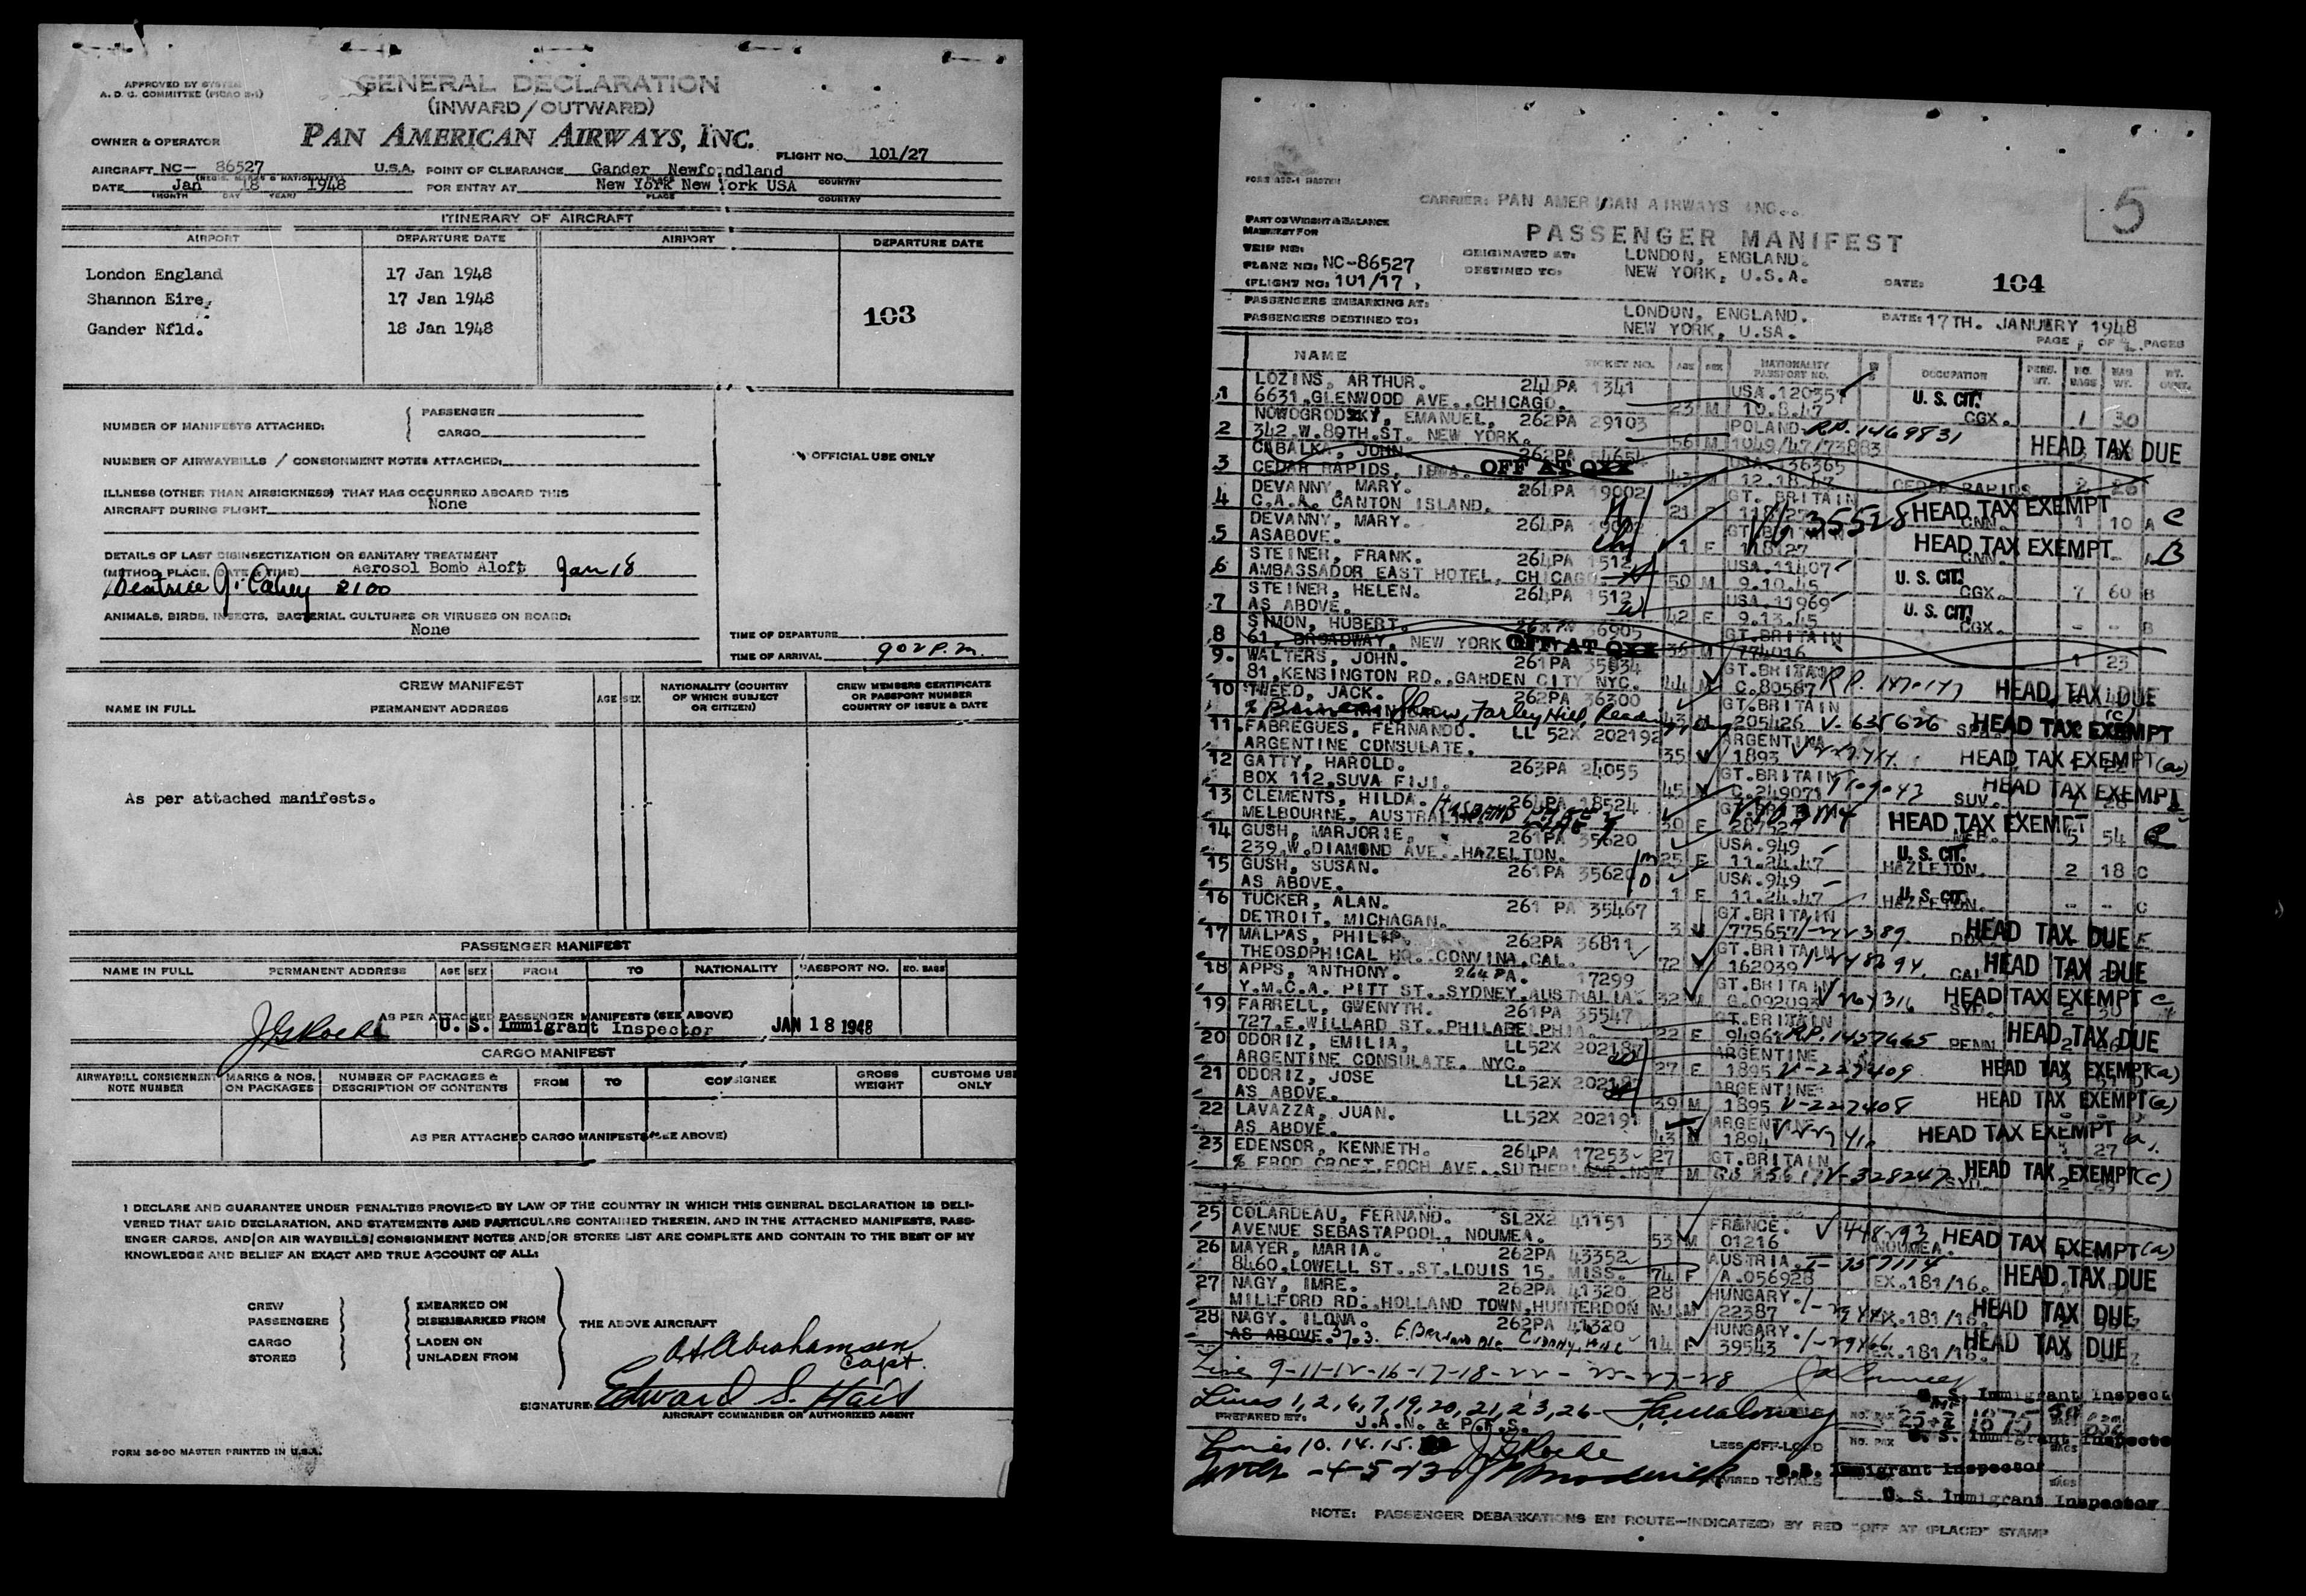 APPROVED BY SYSTEM
A. D. C. COMMITTEE (PICAO B-1)
GENERAL DECLARATION
(INWARD/OUTWARD)
OWNER & OPERATOR PAN AMERICAN AIRWAYS, INC.
FLIGHT NO. 101/27
AIRCRAFT NC- 86527 U.S.A. POINT OF CLEARANCE Gander Newfoundland
DATE Jan 18 1948 FOR ENTRY AT New York New York USA
(MONTH DAY YEAR) PLACE COUNTRY
ITINERARY OF AIRCRAFT
AIRPORT DEPARTURE DATE AIRPORT DEPARTURE DATE
London England 17 Jan 1948
Shannon Eire, 17 Jan 1948
103
Gander Nfld. 18 Jan 1948
NUMBER OF MANIFESTS ATTACHED: PASSENGER
CARGO
NUMBER OF AIRWAYBILLS / CONSIGNMENT NOTES ATTACHED:
OFFICIAL USE ONLY
ILLNESS (OTHER THAN AIRSICKNESS) THAT HAS OCCURRED ABOARD THIS
AIRCRAFT DURING FLIGHT None
DETAILS OF LAST DISINSECTIZATION OR SANITARY TREATMENT
(METHOD, PLACE, DATE & TIME) Aerosol Bomb Aloft Jan 18
Beatrice J. Cahey 2100
ANIMALS, BIRDS, INSECTS, BACTERIAL CULTURES OR VIRUSES ON BOARD:
None
TIME OF DEPARTURE
TIME OF ARRIVAL 902 P.M.
CREW MANIFEST
NAME IN FULL PERMANENT ADDRESS AGE SEX NATIONALITY (COUNTRY OF WHICH SUBJECT OR CITIZEN) CREW MEMBERS CERTIFICATE OR PASSPORT NUMBER COUNTRY OF ISSUE & DATE
As per attached manifests.
PASSENGER MANIFEST
NAME IN FULL PERMANENT ADDRESS AGE SEX FROM TO NATIONALITY PASSPORT NO. NO. BAGS
AS PER ATTACHED PASSENGER MANIFESTS (SEE ABOVE)
U. S. Immigrant Inspector JAN 18 1948
CARGO MANIFEST
AIRWAYBILL CONSIGNMENT NOTE NUMBER MARKS & NOS. ON PACKAGES NUMBER OF PACKAGES & DESCRIPTION OF CONTENTS FROM TO CONSIGNEE GROSS WEIGHT CUSTOMS USE ONLY
AS PER ATTACHED CARGO MANIFESTS (SEE ABOVE)
I DECLARE AND GUARANTEE UNDER PENALTIES PROVIDED BY LAW OF THE COUNTRY IN WHICH THIS GENERAL DECLARATION IS DELI-
VERED THAT SAID DECLARATION, AND STATEMENTS AND PARTICULARS CONTAINED THEREIN, AND IN THE ATTACHED MANIFESTS, PASS-
ENGER CARDS, AND/OR AIR WAYBILLS/CONSIGNMENT NOTES AND/OR STORES LIST ARE COMPLETE AND CONTAIN TO THE BEST OF MY
KNOWLEDGE AND BELIEF AN EXACT AND TRUE ACCOUNT OF ALL:
CREW EMBARKED ON
PASSENGERS DISEMBARKED FROM THE ABOVE AIRCRAFT
CARGO LADEN ON
STORES UNLADEN FROM
A. Abrahamsen
Capt.
SIGNATURE: Edward S. Hait
AIRCRAFT COMMANDER OR AUTHORIZED AGENT
FORM 36-90 MASTER PRINTED IN U.S.A.
CARRIER: PAN AMERICAN AIRWAYS INC..
5
PART OF WEIGHT & BALANCE
MANIFEST FOR
PASSENGER MANIFEST
TRIP NO:
PLANE NO: NC-86527 ORIGINATED AT: LONDON, ENGLAND.
(FLIGHT NO: 101/17, DESTINED TO: NEW YORK, U.S.A. DATE: 104
PASSENGERS EMBARKING AT: LONDON, ENGLAND. DATE: 17TH. JANUERY 1948
PASSENGERS DESTINED TO: NEW YORK, U.SA.
PAGE 1 OF PAGES
NAME TICKET NO. AGE SEX NATIONALITY PASSPORT NO. OCCUPATION PERS. WT. NO. BAGS BAG WT.
1 LOZINS, ARTHUR. 244PA 1341 USA.120357 U. S. CIT.
6631,GLENWOOD AVE.,CHICAGO. 23 M 10.8.47 CGX. 1 30
2 NOWOGRODZKY, EMANUEL, 262PA 29103 POLAND. RP. 1469831
342.W.89TH.ST. NEW YORK. 56 M 1049/47/73883 HEAD TAX DUE
3 CABALKA, JOHN. 262PA 54654 USA. 136365
CEDAR RAPIDS, IOWA. OFF AT QXX 43 M 12.18.47 CEDAR RAPIDS
4 DEVANNY, MARY. 264PA 19002 GT. BRITAIN HEAD TAX EXEMPT C
C.A.A. CANTON ISLAND. 21 F V/B 35528 CNN. 1 10 A
5 DEVANNY, MARY. 264PA 19002 GT.BRITAIN
ASABOVE. 1 F 118127 HEAD TAX EXEMPT CNN. B
6 STEINER, FRANK. 264PA 1512 USA.11407 U. S. CIT.
AMBASSADOR EAST HOTEL, CHICAGO. 50 M 9.10.45 CGX. 7 60 B
7 STEINER, HELEN. 264PA 1512 USA.11969 U. S. CIT.
AS ABOVE. 42 F 9.13.45 CGX. - - B
8 SIMON, HUBERT. 36905 GT.BRITAIN
61, BROADWAY, NEW YORK OFF AT QXX 36 M 774016 1 23
9. WALTERS, JOHN. 261PA 35834 GT.BRITAIN
81,KENSINGTON RD.,GARDEN CITY NYC. 44 M C.80587 RP. HEAD TAX DUE
10 TWEED, JACK. 262PA 36300 GT.BRITAIN
% Shaw, Farley Hill, 43 205426 V-635626 HEAD TAX EXEMPT (c)
11 FABREGUES, FERNANDO. LL 52X 202192 ARGENTINA
ARGENTINE CONSULATE. 35 1893 HEAD TAX EXEMPT (a)
12 GATTY, HAROLD. 263PA 24055 GT.BRITAIN
BOX 112,SUVA FIJI. 45 C.249071 SUV. HEAD TAX EXEMPT
13 CLEMENTS, HILDA. 264PA 18524
MELBOURNE, AUSTRALIA 30 F HEAD TAX EXEMPT 5 54 C
14 GUSH, MARJORIE, 261PA 35620 USA.949 U. S. CIT.
239,W.DIAMOND AVE.,HAZELTON. 25 F 11.24.47 HAZLETON. 2 18 C
15 GUSH, SUSAN. 261PA 35620 USA.949 U. S. CIT.
AS ABOVE. 1 F 11.24.47 HAZLETON. - - C
16 TUCKER, ALAN. 261 PA 35467 GT.BRITAIN
DETROIT, MICHAGAN. 3 775657 HEAD TAX DUE
17 MALPAS, PHILIP. 262PA 36811 GT.BRITAIN
THEOSOPHICAL HQ. CONVINA,CAL. 72 162039 CAL. HEAD TAX DUE
18 APPS, ANTHONY. 264 PA. 17299 GT.BRITAIN
Y.M.C.A. PITT ST.,SYDNEY,AUSTRALIA. 32 M G.092093 SYD. HEAD TAX EXEMPT C
19 FARRELL, GWENYTH. 261PA 35547 GT.BRITAIN
727,E.WILLARD ST.,PHILADELPHIA. 22 F 94961 RP. 1457665 PENN. HEAD TAX DUE
20 ODORIZ, EMILIA, LL52X 202187 ARGENTINE
ARGENTINE CONSULATE. NYC. 27 F 1895 V-227409 HEAD TAX EXEMPT (a)
21 ODORIZ, JOSE LL52X 202187 ARGENTINE
AS ABOVE. 39 M 1895 V-227408 HEAD TAX EXEMPT (a)
22 LAVAZZA, JUAN. LL52X 202191 ARGENTINE
AS ABOVE. 43 1894 HEAD TAX EXEMPT a. 27
23 EDENSOR, KENNETH. 264PA 17253 27 GT.BRITAIN
% FROD CROFT,FOCH AVE.,SUTHERLAND.NSW M V-328247 SYD. HEAD TAX EXEMPT (c)
25 COLARDEAU, FERNAND. SL2X2 41151 FRANCE. V 448293
AVENUE SEBASTAPOOL, NOUMEA. 53 M 01216 NOUMEA. HEAD TAX EXEMPT (a)
26 MAYER, MARIA. 262PA 43352 AUSTRIA.
8460,LOWELL ST.,ST.LOUIS 15. MISS. 74 F A.056928 EX.181/16. HEAD TAX DUE
27 NAGY, IMRE. 262PA 41320 28 HUNGARY.
MILLFORD RD.,HOLLAND TOWN,HUNTERDON NJ M 22387 181/16. HEAD TAX DUE
28 NAGY, ILONA. 262PA 41320 HUNGARY. 1-29466
AS ABOVE. 14 F 39543 EX.181/16. HEAD TAX DUE
Line 9-11-12-16-17-18-22- 25-27-28
U. S. Immigrant Inspector
Lines 1, 2, 6, 7, 19, 20, 21, 23, 26-
PREPARED BY: J.A.N. & P.F.S. NO. PAX 25+2 1675
U. S. Immigrant Inspector
Lines 10. 14. 15. LESS OFF-LOAD NO. PAX BAGS
-4-5-13 REVISED TOTALS
U.S. Immigrant Inspector
U. S. Immigrant Inspector
NOTE: PASSENGER DEBARKATIONS EN ROUTE-INDICATE(D) BY RED "OFF AT (PLACE)" STAMP